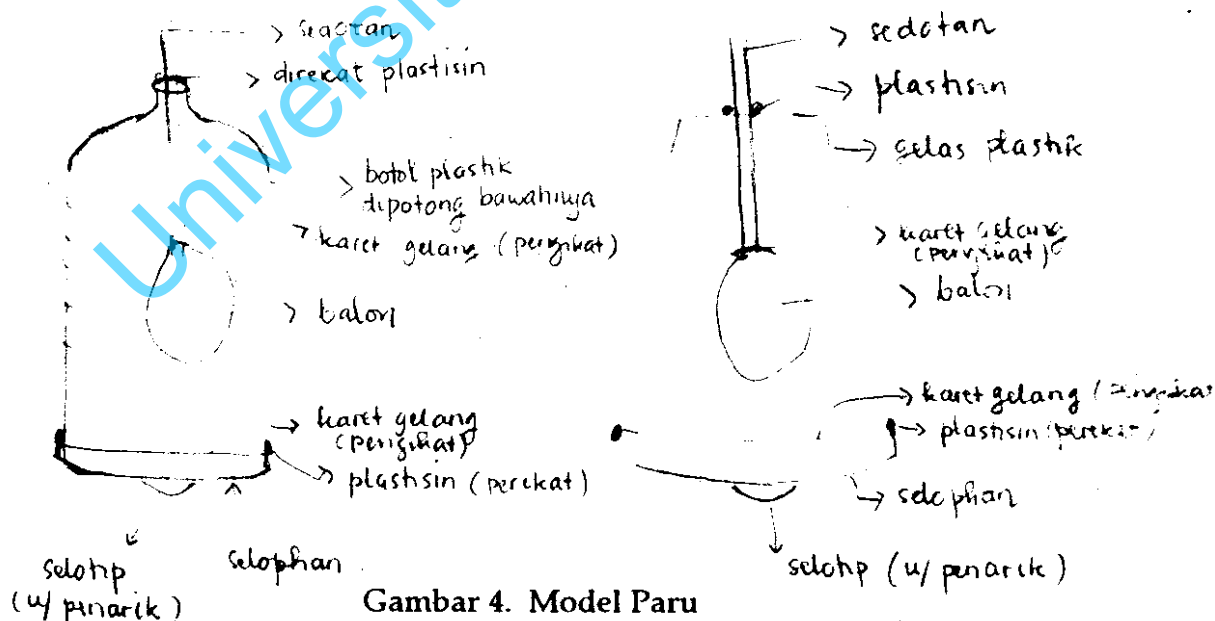 sedotan
direkat plastisin
botol plastik
dipotong bawahnya
karet gelang (pengikat)
balon
karet gelang
(pengikat)
plastisin (perekat)
selotip
(u/ penarik)
selophan
sedotan
plastisin
gelas plastik
karet gelang
(pengikat)
balon
karet gelang (pengikat
plastisin (perekat)
selophan
selotip (u/ penarik)
Gambar 4. Model Paru